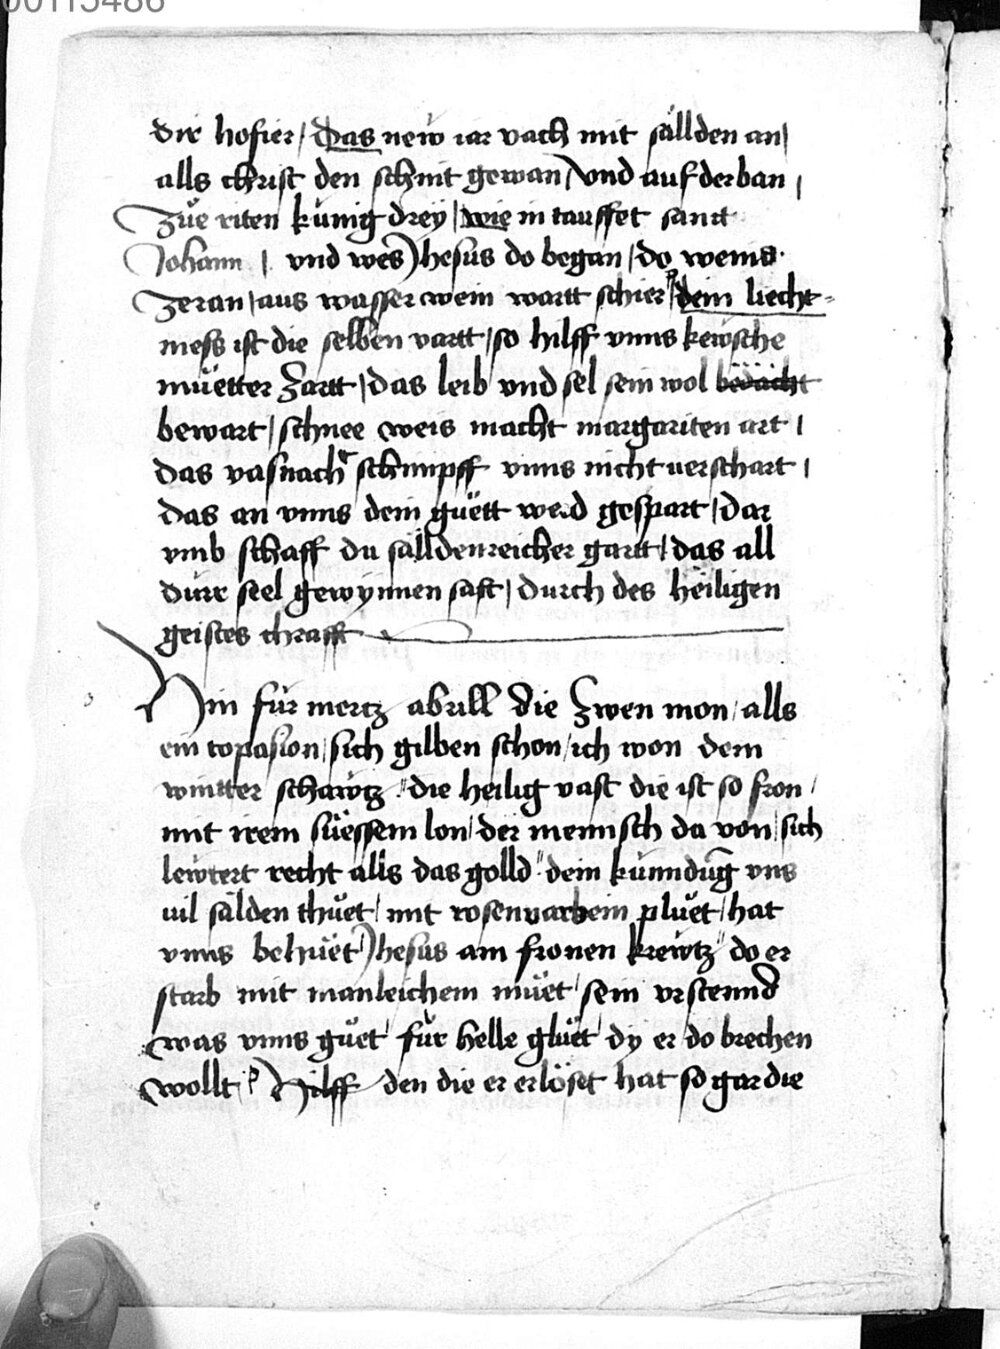 00115486
dir hofier / Das new iar vach mit sällden an /
alls christ den schnit gewan / vnd auf der ban /
Zue riten künig drey / wie in tauffet sanct
Johann / vnd wes Jhesus do began / do wems
Zeran / aus wasser wein wartt schier / dein liecht=
mess ist die selben vartt / so hilff vnns kewsche
müetter zartt / das leib vnd sel sein wol bedacht
bewart / schnee weis macht margariten art /
das vasnacht schimpff vnns nicht verschart /
das an vnns dein güett werd gespart / dar
vmb schaff du sälldenreicher gartt / das all
dürr seel gewynnen saft / durch des heiligen
geistes chrafft
Hin für mertz abrill die zwen mon / alls
ein topasion / sich gilben schon / ich won dem
wintter schawtz / die heilig vast die ist so fron /
mit irem süessem lon / der mennsch da von / sich
lewtert recht alls das golld / dein künndūg vns
vil sälden thuet / mit rosenvarbem pluet / hat
vnns behuet Jhesus am fronen krewtz / do er
starb mit manleichem muet / sein vrstennd
was vnns guet / für helle gluet / dy er do brechen
wollt / Hilff den die er erlöset hat so gar die